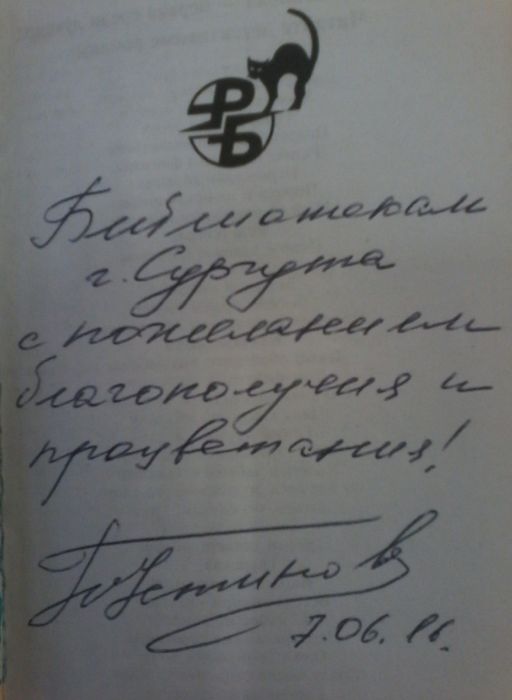 РБ
Библиотекам
г. Сургута
с пожеланием
благополучия и
процветания!
Устинов
7.06.96.